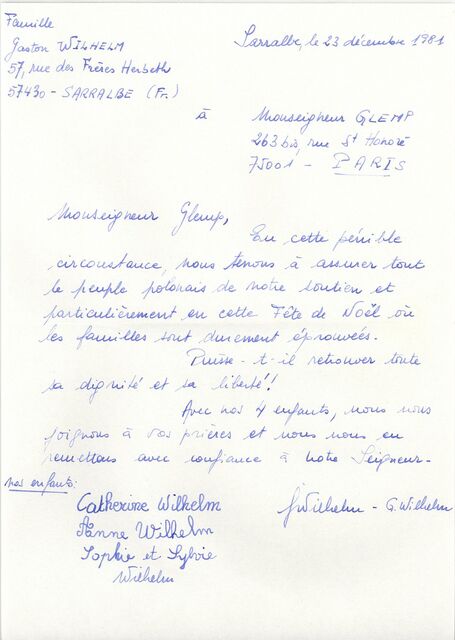 Famille
Gaston WILHELM
57, rue des Frères Herbeth
57430 - SARRALBE (Fr.)
Sarralbe, le 23 décembre 1981
à
Monseigneur GLEMP
263 bis, rue St Honoré
75001 - PARIS
Monseigneur Glemp,
En cette pénible
circonstance, nous tenons à assurer tout
le peuple polonais de notre soutien et
particulièrement en cette Fête de Noël où
les familles sont durement éprouvées.
Puisse-t-il retrouver toute
sa dignité et sa liberté!
Avec nos 4 enfants, nous nous
joignons à vos prières et nous nous en
remettons avec confiance à notre Seigneur-
nos enfants:
Catherine Wilhelm
Anne Wilhelm
Sophie et Sylvie
Wilhelm
J Wilhelm - G. Wilhelm